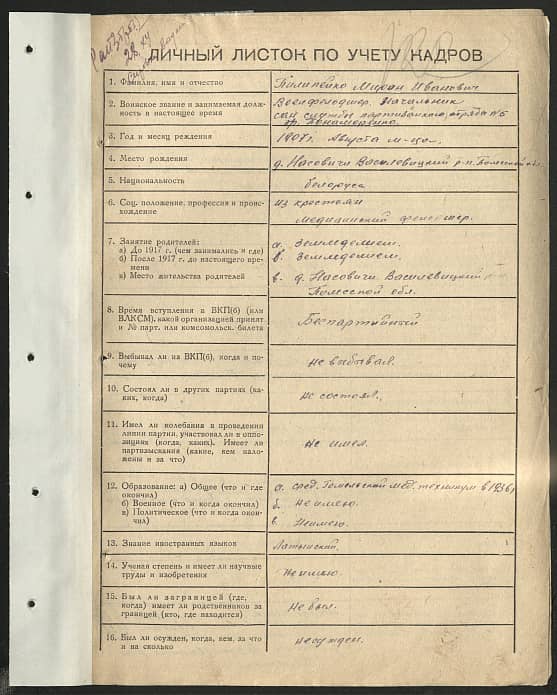 ЛИЧНЫЙ ЛИСТОК ПО УЧЕТУ КАДРОВ
1. Фамилия, имя и отчество
Пилипенко Мирон Иванович
2. Воинское звание и занимаемая долж-
ность в настоящее время
Военфельдшер. Начальник
сан службы партизанского отряда №5
3. Год и месяц рождения
1907 г. Августа м-ца.
4. Место рождения
д. Насовичи Василевицкий р-н Полесской обл.
5. Национальность
белоруса
6. Соц. положение, профессия и проис-
хождение
из крестьян
Медицинский фельдшер.
7. Занятие родителей:
а) До 1917 г. (чем занимались и где)
б) После 1917 г. до настоящего вре-
мени
в) Место жительства родителей
а. Земледелием.
б. Земледелием.
в. д. Насовичи Василевицкий р-н
Полесской обл.
8. Время вступления в ВКП(б) (или
ВЛКСМ), какой организацией принят
и № парт. или комсомольск. билета
Беспартийный
9. Выбывал ли из ВКП(б), когда и по-
чему
не выбывал.
10. Состоял ли в других партиях (ка-
ких, когда)
не состоял.
11. Имел ли колебания в проведении
линии партии, участвовал ли в оппо-
зициях (когда, каких). Имеет ли
партвзыскания (какие, кем нало-
жены и за что)
не имел.
12. Образование: а) Общее (что и где
окончил)
б) Военное (что и когда окончил)
в) Политическое (что и когда окон-
чил)
а. сред. Гомельский мед. техникум в 1936 г
б. Не имею.
в. Неимею.
13. Знание иностранных языков
Латынский.
14. Ученая степень и имеет ли научные
труды и изобретения
неимею.
15. Был ли заграницей (где,
когда) имеет ли родственников за
границей (кто, где находится)
Не был.
16. Был ли осужден, когда, кем, за что
и на сколько
несужден.